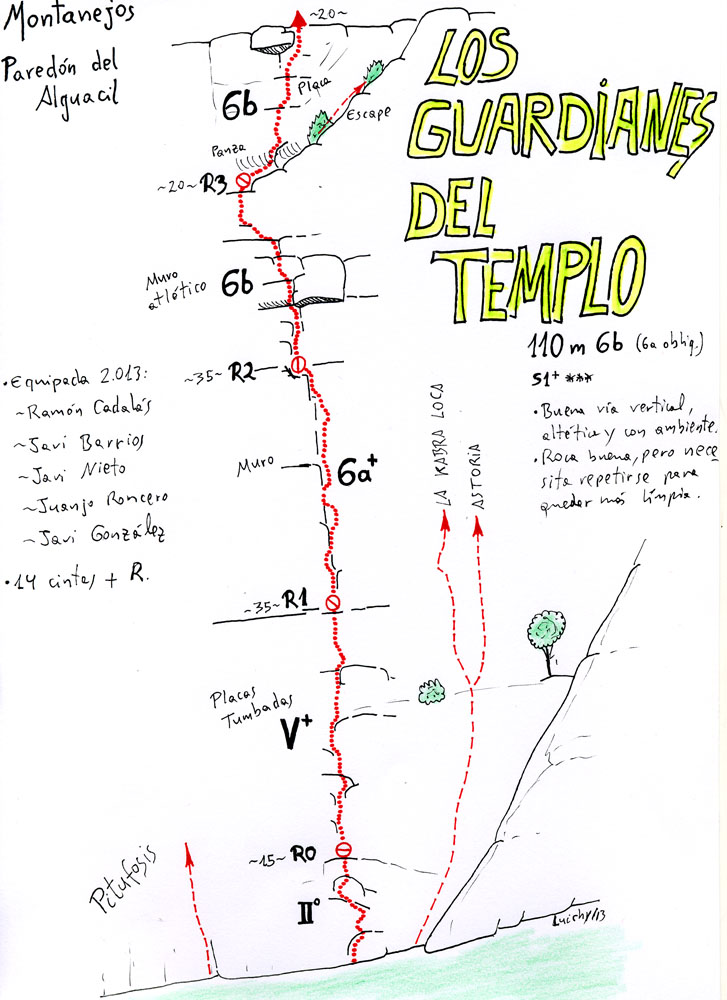 Montanejos
Paredón del
Alguacil
~20~
LOS
GUARDIANES
DEL
TEMPLO
Placa
6b
Escape
Panza
~20~ R3
Muro
atlético
6b
110 m 6b (6a oblig.)
S1+ ***
• Buena vía vertical,
altética y con ambiente.
• Roca buena, pero nece
sita repetirse para
quedar más limpia.
~35~ R2
• Equipada 2.013:
~ Ramón Cadalás
~ Javi Barrios
~ Javi Nieto
~ Juanjo Roncero
~ Javi González
• 14 cintas + R.
Muro
6a+
LA KABRA LOCA
ASTORIA
~35~ R1
Placas
Tumbadas
V+
~15~ R0
Pitufosis
IIº
Luichy/13